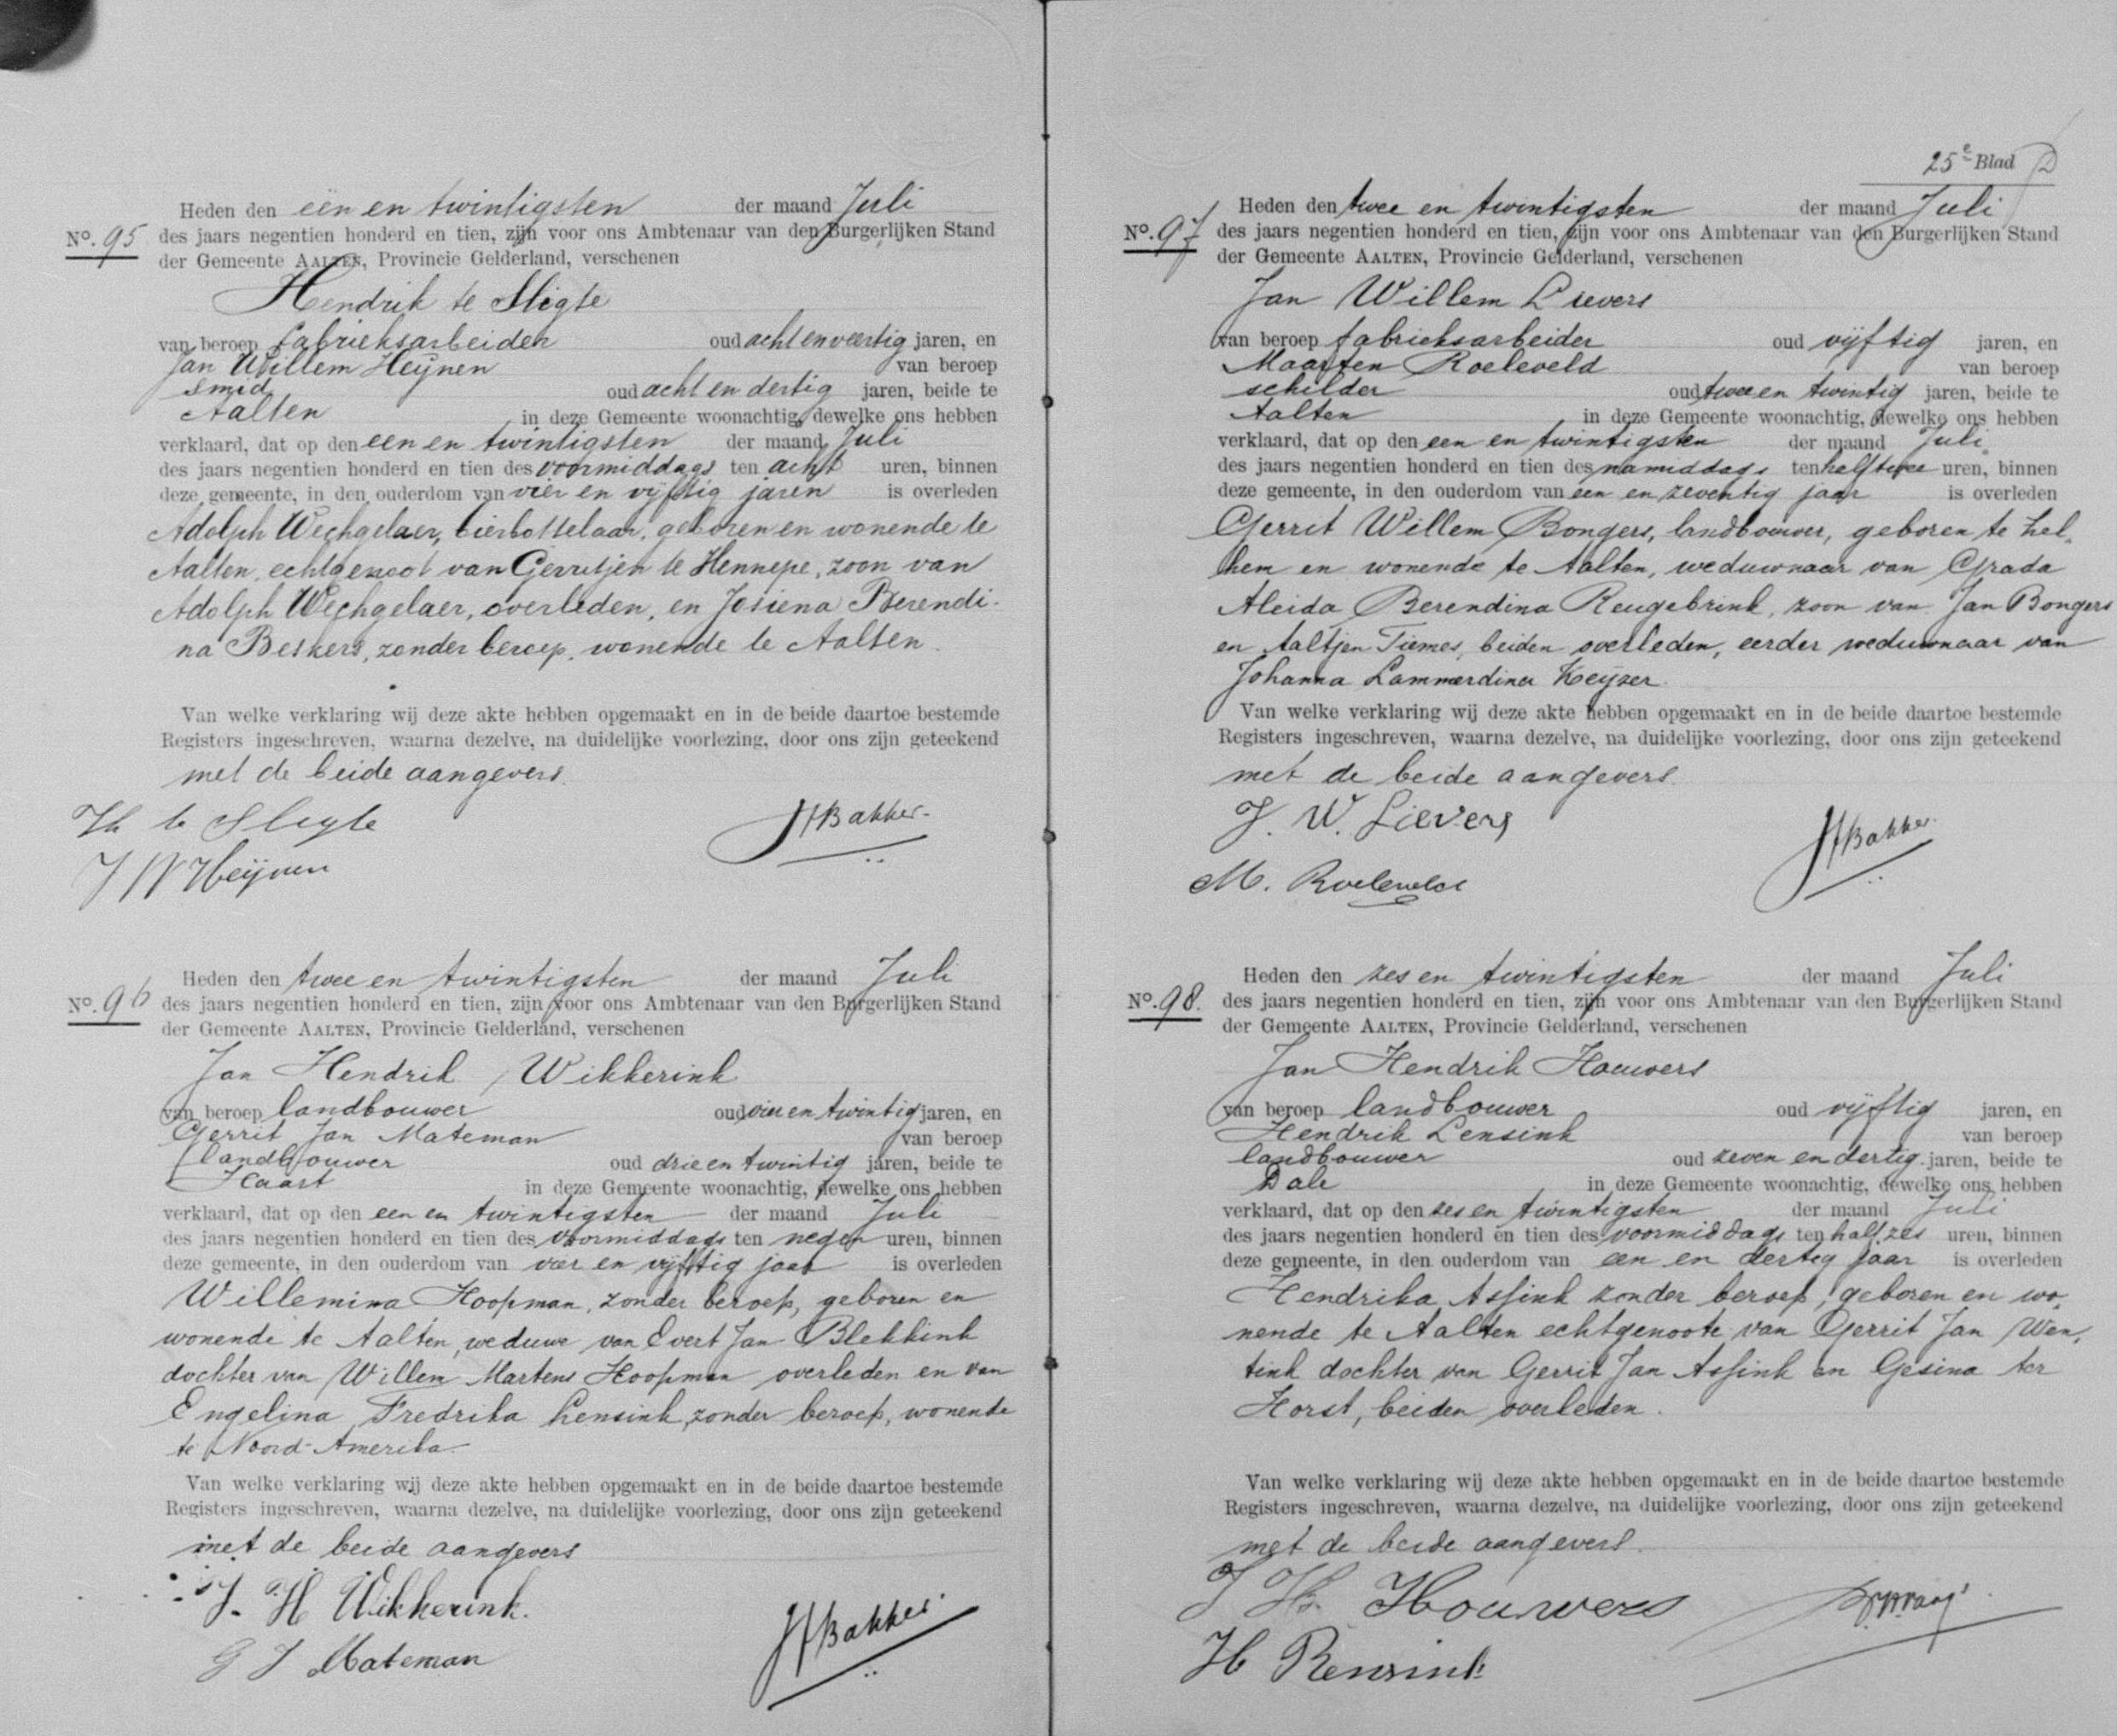 Heden den een en twintigsten der maand Juli
No. 95 des jaars negentien honderd en tien, zijn voor ons Ambtenaar van den Burgerlijken Stand
der Gemeente AALTEN, Provincie Gelderland, verschenen
Hendrik te Sligte
van beroep fabrieksarbeider oud acht en veertig jaren, en
Jan Willem Heijnen van beroep
smid oud acht en dertig jaren, beide te
Aalten in deze Gemeente woonachtig, dewelke ons hebben
verklaard, dat op den een en twintigsten der maand Juli
des jaars negentien honderd en tien des voormiddags ten acht uren, binnen
deze gemeente, in den ouderdom van vier en vijftig jaren is overleden
Adolph Wechgelaer, bierbottelaar, geboren en wonende te
Aalten, echtgenoot van Gerritjen te Hennepe, zoon van
Adolph Wechgelaer, overleden, en Josiena Berendi-
na Beskers, zonder beroep, wonende te Aalten.
Van welke verklaring wij deze akte hebben opgemaakt en in de beide daartoe bestemde
Registers ingeschreven, waarna dezelve, na duidelijke voorlezing, door ons zijn geteekend
met de beide aangevers.
H te Sligte
JHBakker.
J W Heijnen
Heden den twee en twintigsten der maand Juli
No. 96 des jaars negentien honderd en tien, zijn voor ons Ambtenaar van den Burgerlijken Stand
der Gemeente AALTEN, Provincie Gelderland, verschenen
Jan Hendrik Wikkerink
van beroep landbouwer oud vier en twintig jaren, en
Gerrit Jan Mateman van beroep
landbouwer oud drie en twintig jaren, beide te
Haart in deze Gemeente woonachtig, dewelke ons hebben
verklaard, dat op den een en twintigsten der maand Juli
des jaars negentien honderd en tien des voormiddags ten negen uren, binnen
deze gemeente, in den ouderdom van vier en vijftig jaar is overleden
Willemina Hoopman, zonder beroep, geboren en
wonende te Aalten, weduwe van Evert Jan Blekkink
dochter van Willem Martens Hoopman overleden en van
Engelina Fredrika Lensink, zonder beroep, wonende
te Noord-Amerika.
Van welke verklaring wij deze akte hebben opgemaakt en in de beide daartoe bestemde
Registers ingeschreven, waarna dezelve, na duidelijke voorlezing, door ons zijn geteekend
met de beide aangevers
J. H Wikkerink.
G J Mateman
JHBakker.
25e Blad
Heden den twee en twintigsten der maand Juli
No. 97 des jaars negentien honderd en tien, zijn voor ons Ambtenaar van den Burgerlijken Stand
der Gemeente AALTEN, Provincie Gelderland, verschenen
Jan Willem Lievers
van beroep fabrieksarbeider oud vijftig jaren, en
Maarten Roeleveld van beroep
schilder oud twee en twintig jaren, beide te
Aalten in deze Gemeente woonachtig, dewelke ons hebben
verklaard, dat op den een en twintigsten der maand Juli
des jaars negentien honderd en tien des namiddags ten half twee uren, binnen
deze gemeente, in den ouderdom van een en zeventig jaar is overleden
Gerrit Willem Bongers, landbouwer, geboren te Zel,
hem en wonende te Aalten, weduwnaar van Grada
Aleida Berendina Reugebrink, zoon van Jan Bongers
en Aaltjen Tiemes, beiden overleden, eerder weduwnaar van
Johanna Lammerdina Keijzer.
Van welke verklaring wij deze akte hebben opgemaakt en in de beide daartoe bestemde
Registers ingeschreven, waarna dezelve, na duidelijke voorlezing, door ons zijn geteekend
met de beide aangevers.
J. W. Lievers
JHBakker.
M. Roeleveld
Heden den zes en twintigsten der maand Juli
No. 98. des jaars negentien honderd en tien, zijn voor ons Ambtenaar van den Burgerlijken Stand
der Gemeente AALTEN, Provincie Gelderland, verschenen
Jan Hendrik Houwers
van beroep landbouwer oud vijftig jaren, en
Hendrik Lensink van beroep
landbouwer oud zeven en dertig jaren, beide te
Dale in deze Gemeente woonachtig, dewelke ons hebben
verklaard, dat op den zes en twintigsten der maand Juli
des jaars negentien honderd en tien des voormiddags ten half zes uren, binnen
deze gemeente, in den ouderdom van een en dertig jaar is overleden
Hendrika Assink zonder beroep, geboren en wo,
nende te Aalten echtgenoote van Gerrit Jan Wen,
tink dochter van Gerrit Jan Assink en Gesina ter
Horst, beiden overleden.
Van welke verklaring wij deze akte hebben opgemaakt en in de beide daartoe bestemde
Registers ingeschreven, waarna dezelve, na duidelijke voorlezing, door ons zijn geteekend
met de beide aangevers.
J H. Houwers
H Rensink